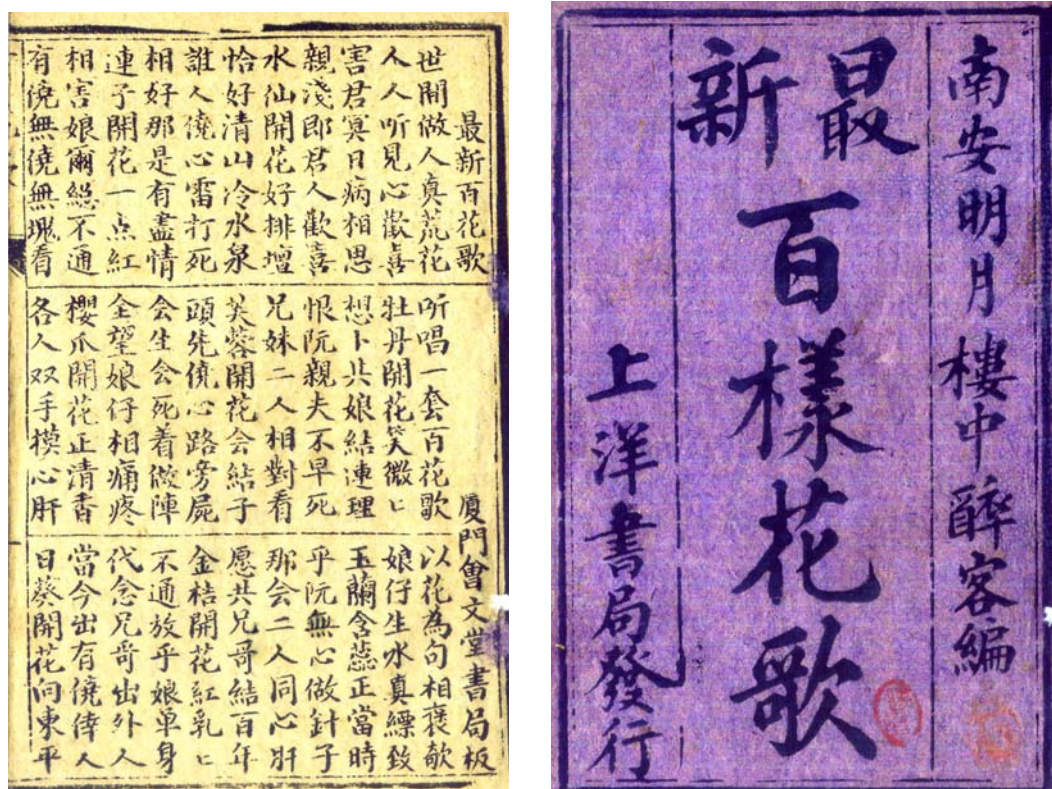 最新百花歌 廈門會文堂書局板
世間做人真荒花 听唱一套百花歌 以花為句相褒歌
人人听見心歡喜 牡丹開花笑微匕 娘仔生水真縹致
害君冥日病相思 想卜共娘結連理 玉蘭含蕊正當時
親淺郎君人歡喜 恨阮親夫不早死 乎阮無心做針子
水仙開花好排壇 兄妹二人相對看 那会二人同心肝
恰好清山冷水泉 芙蓉開花会結子 愿共兄哥結百年
誰人僥心雷打死 頭先僥心路旁屍 金桔開花紅乳匕
相好那是有盡情 会生会死着做陣 不通放乎娘单身
連子開花一点紅 全望娘仔相痛疼 代念兄哥出外人
相害娘爾總不通 櫻爪開花正清香 當今出有僥倖人
有僥無僥無塊看 各人双手模心肝 日葵開花向東平
南安明月樓中醉客編
最新
百樣花歌
上洋書局發行